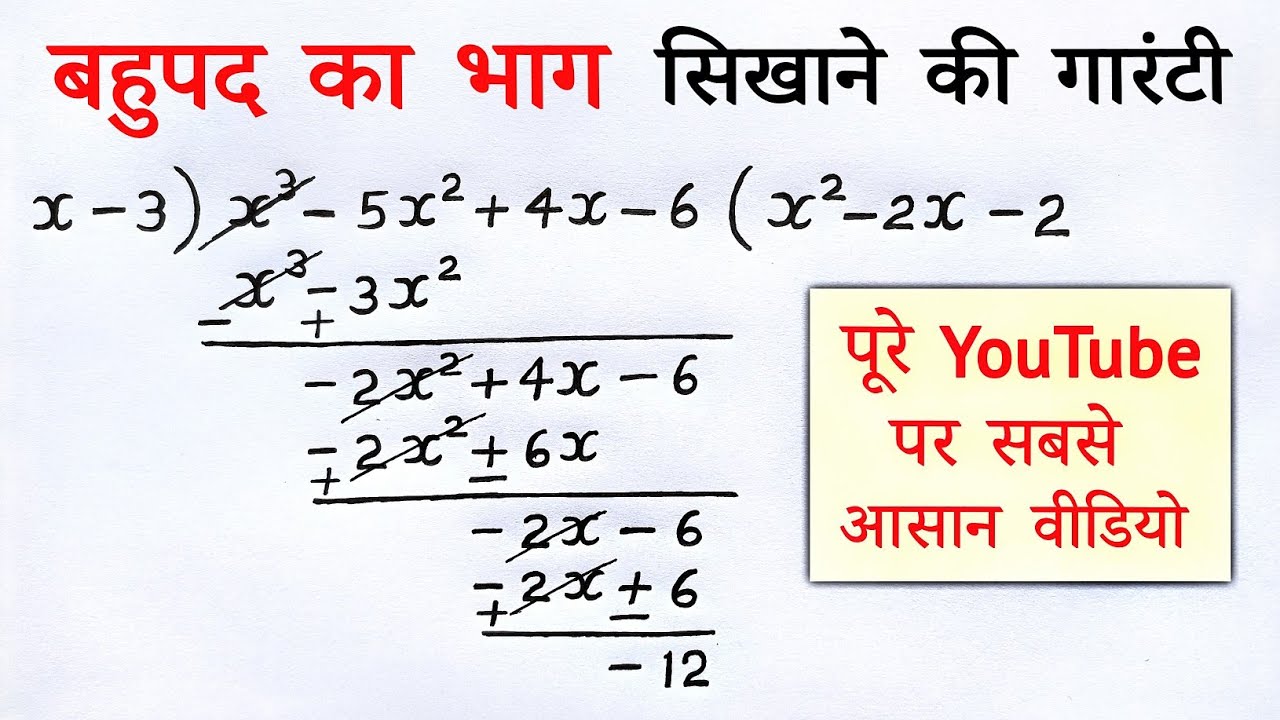 बहुपद का भाग सिखाने की गारंटी
x - 3 ) x³ - 5x² + 4x - 6 ( x² - 2x - 2
x³ - 3x²
- +
- 2x² + 4x - 6
- 2x² + 6x
+ -
- 2x - 6
- 2x + 6
+ -
- 12
पूरे YouTube
पर सबसे
आसान वीडियो